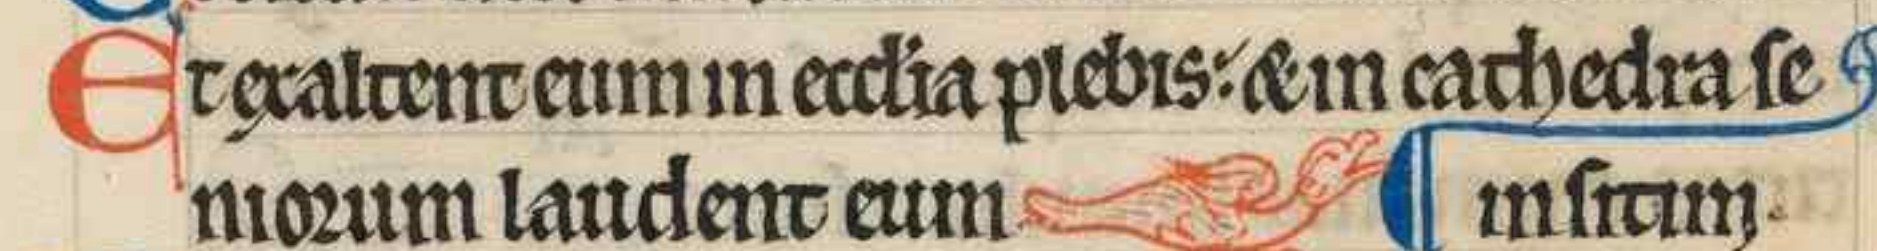 Et exaltent eum in eccl̄ia plebis: & in cathedra se
niorum laudent eum in sitim.